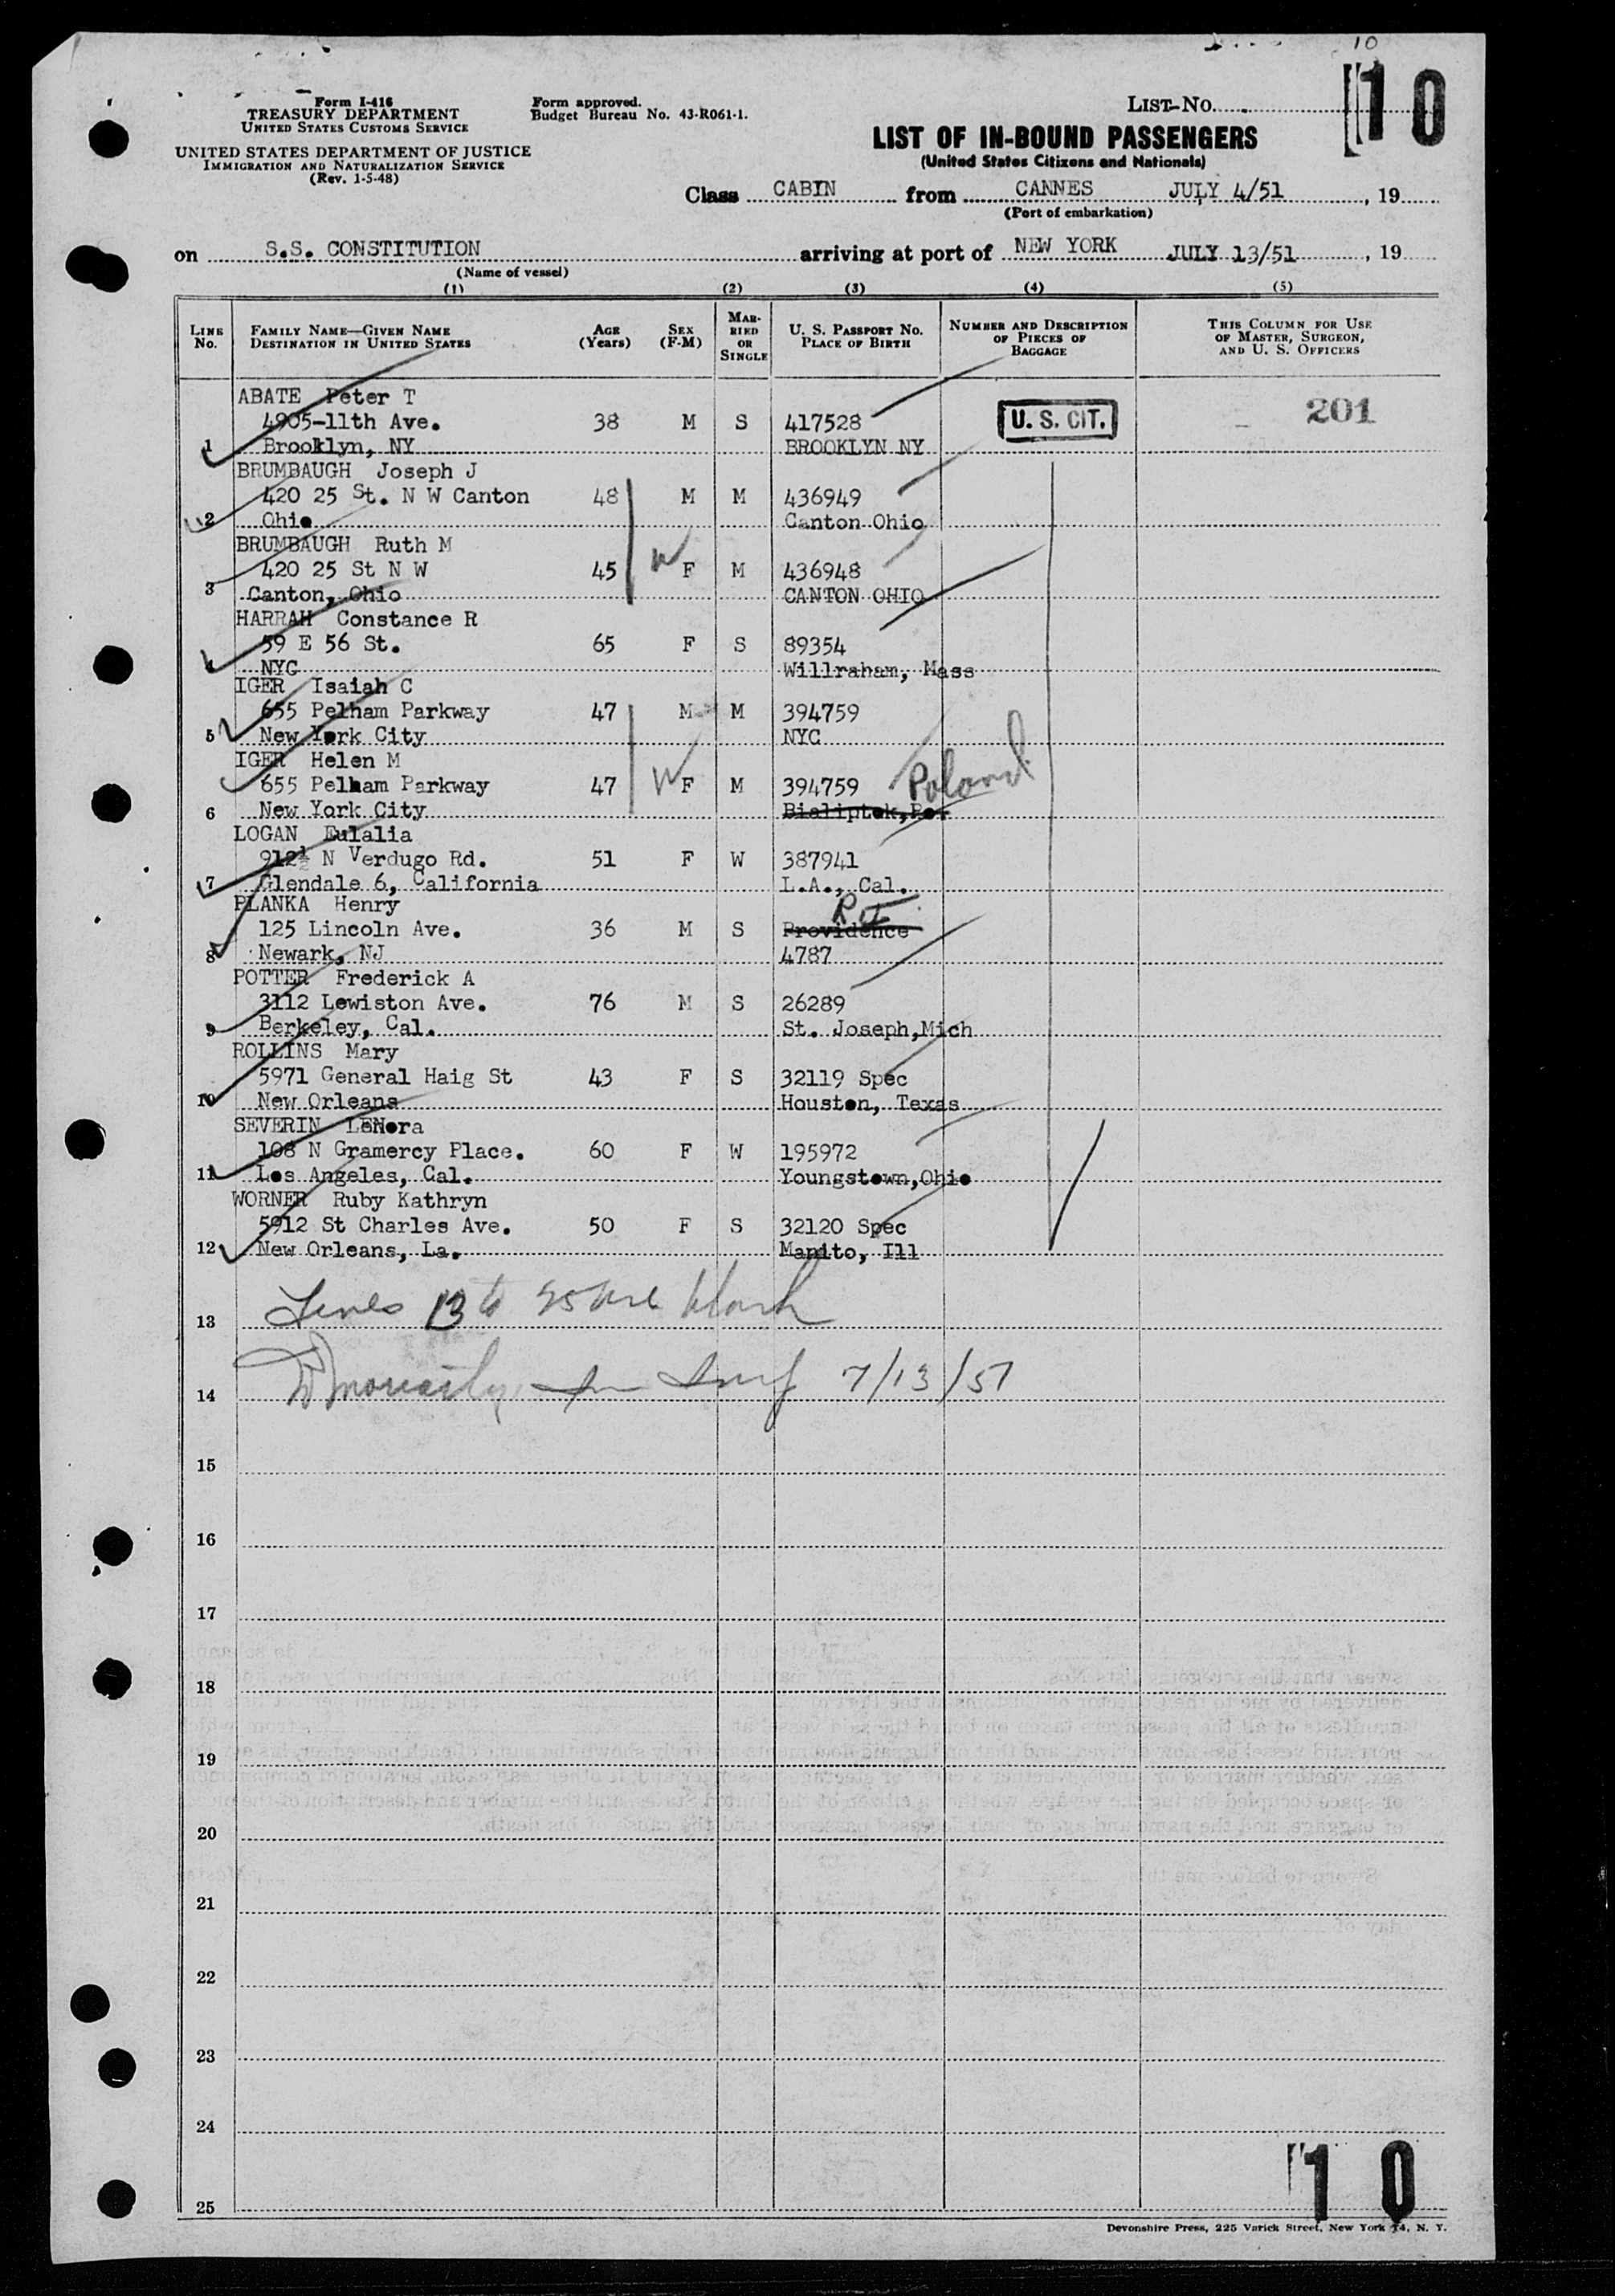 10
Form I-416
TREASURY DEPARTMENT
UNITED STATES CUSTOMS SERVICE
UNITED STATES DEPARTMENT OF JUSTICE
IMMIGRATION AND NATURALIZATION SERVICE
(Rev. 1-5-48)
Form approved.
Budget Bureau No. 43-R061-1.
LIST NO.
10
LIST OF IN-BOUND PASSENGERS
(United States Citizens and Nationals)
Class CABIN from CANNES JULY 4/51, 19
(Port of embarkation)
on S.S. CONSTITUTION arriving at port of NEW YORK JULY 13/51, 19
(Name of vessel)
(1) (2) (3) (4) (5)
LINE No. FAMILY NAME—GIVEN NAME DESTINATION IN UNITED STATES AGE (Years) SEX (F-M) MARRIED OR SINGLE U. S. PASSPORT NO. PLACE OF BIRTH NUMBER AND DESCRIPTION OF PIECES OF BAGGAGE THIS COLUMN FOR USE OF MASTER, SURGEON, AND U. S. OFFICERS
ABATE Peter T
4905-11th Ave. 38 M S 417528 U. S. CIT. 201
1 Brooklyn, NY BROOKLYN NY
BRUMBAUGH Joseph J
420 25 St. N W Canton 48 M M 436949
2 Ohio Canton Ohio
BRUMBAUGH Ruth M
420 25 St N W 45 W F M 436948
3 Canton, Ohio CANTON OHIO
HARRAH Constance R
59 E 56 St. 65 F S 89354
4 NYC Willraham, Mass
IGER Isaiah C
655 Pelham Parkway 47 M M 394759
5 New York City NYC
IGER Helen M
655 Pelham Parkway 47 W F M 394759 Poland
6 New York City
LOGAN Eulalia
912½ N Verdugo Rd. 51 F W 387941
7 Glendale 6, California L.A., Cal.
PLANKA Henry R.I.
125 Lincoln Ave. 36 M S Providence
8 Newark, NJ 4787
POTTER Frederick A
3112 Lewiston Ave. 76 M S 26289
9 Berkeley, Cal. St. Joseph, Mich
ROLLINS Mary
5971 General Haig St 43 F S 32119 Spec
10 New Orleans Houston, Texas
SEVERIN LeNora
108 N Gramercy Place. 60 F W 195972
11 Los Angeles, Cal. Youngstown, Ohio
WORNER Ruby Kathryn
5912 St Charles Ave. 50 F S 32120 Spec
12 New Orleans, La. Manito, Ill
13 Lines 13 to 25 are blank
14 7/13/51
15
16
17
18
19
20
21
22
23
24
25
10
Devonshire Press, 225 Varick Street, New York 14, N. Y.